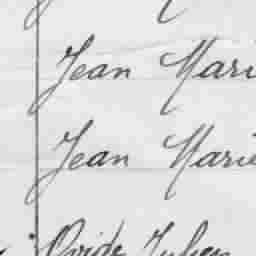 Jean Mari
Jean Marie
Ovide Julien